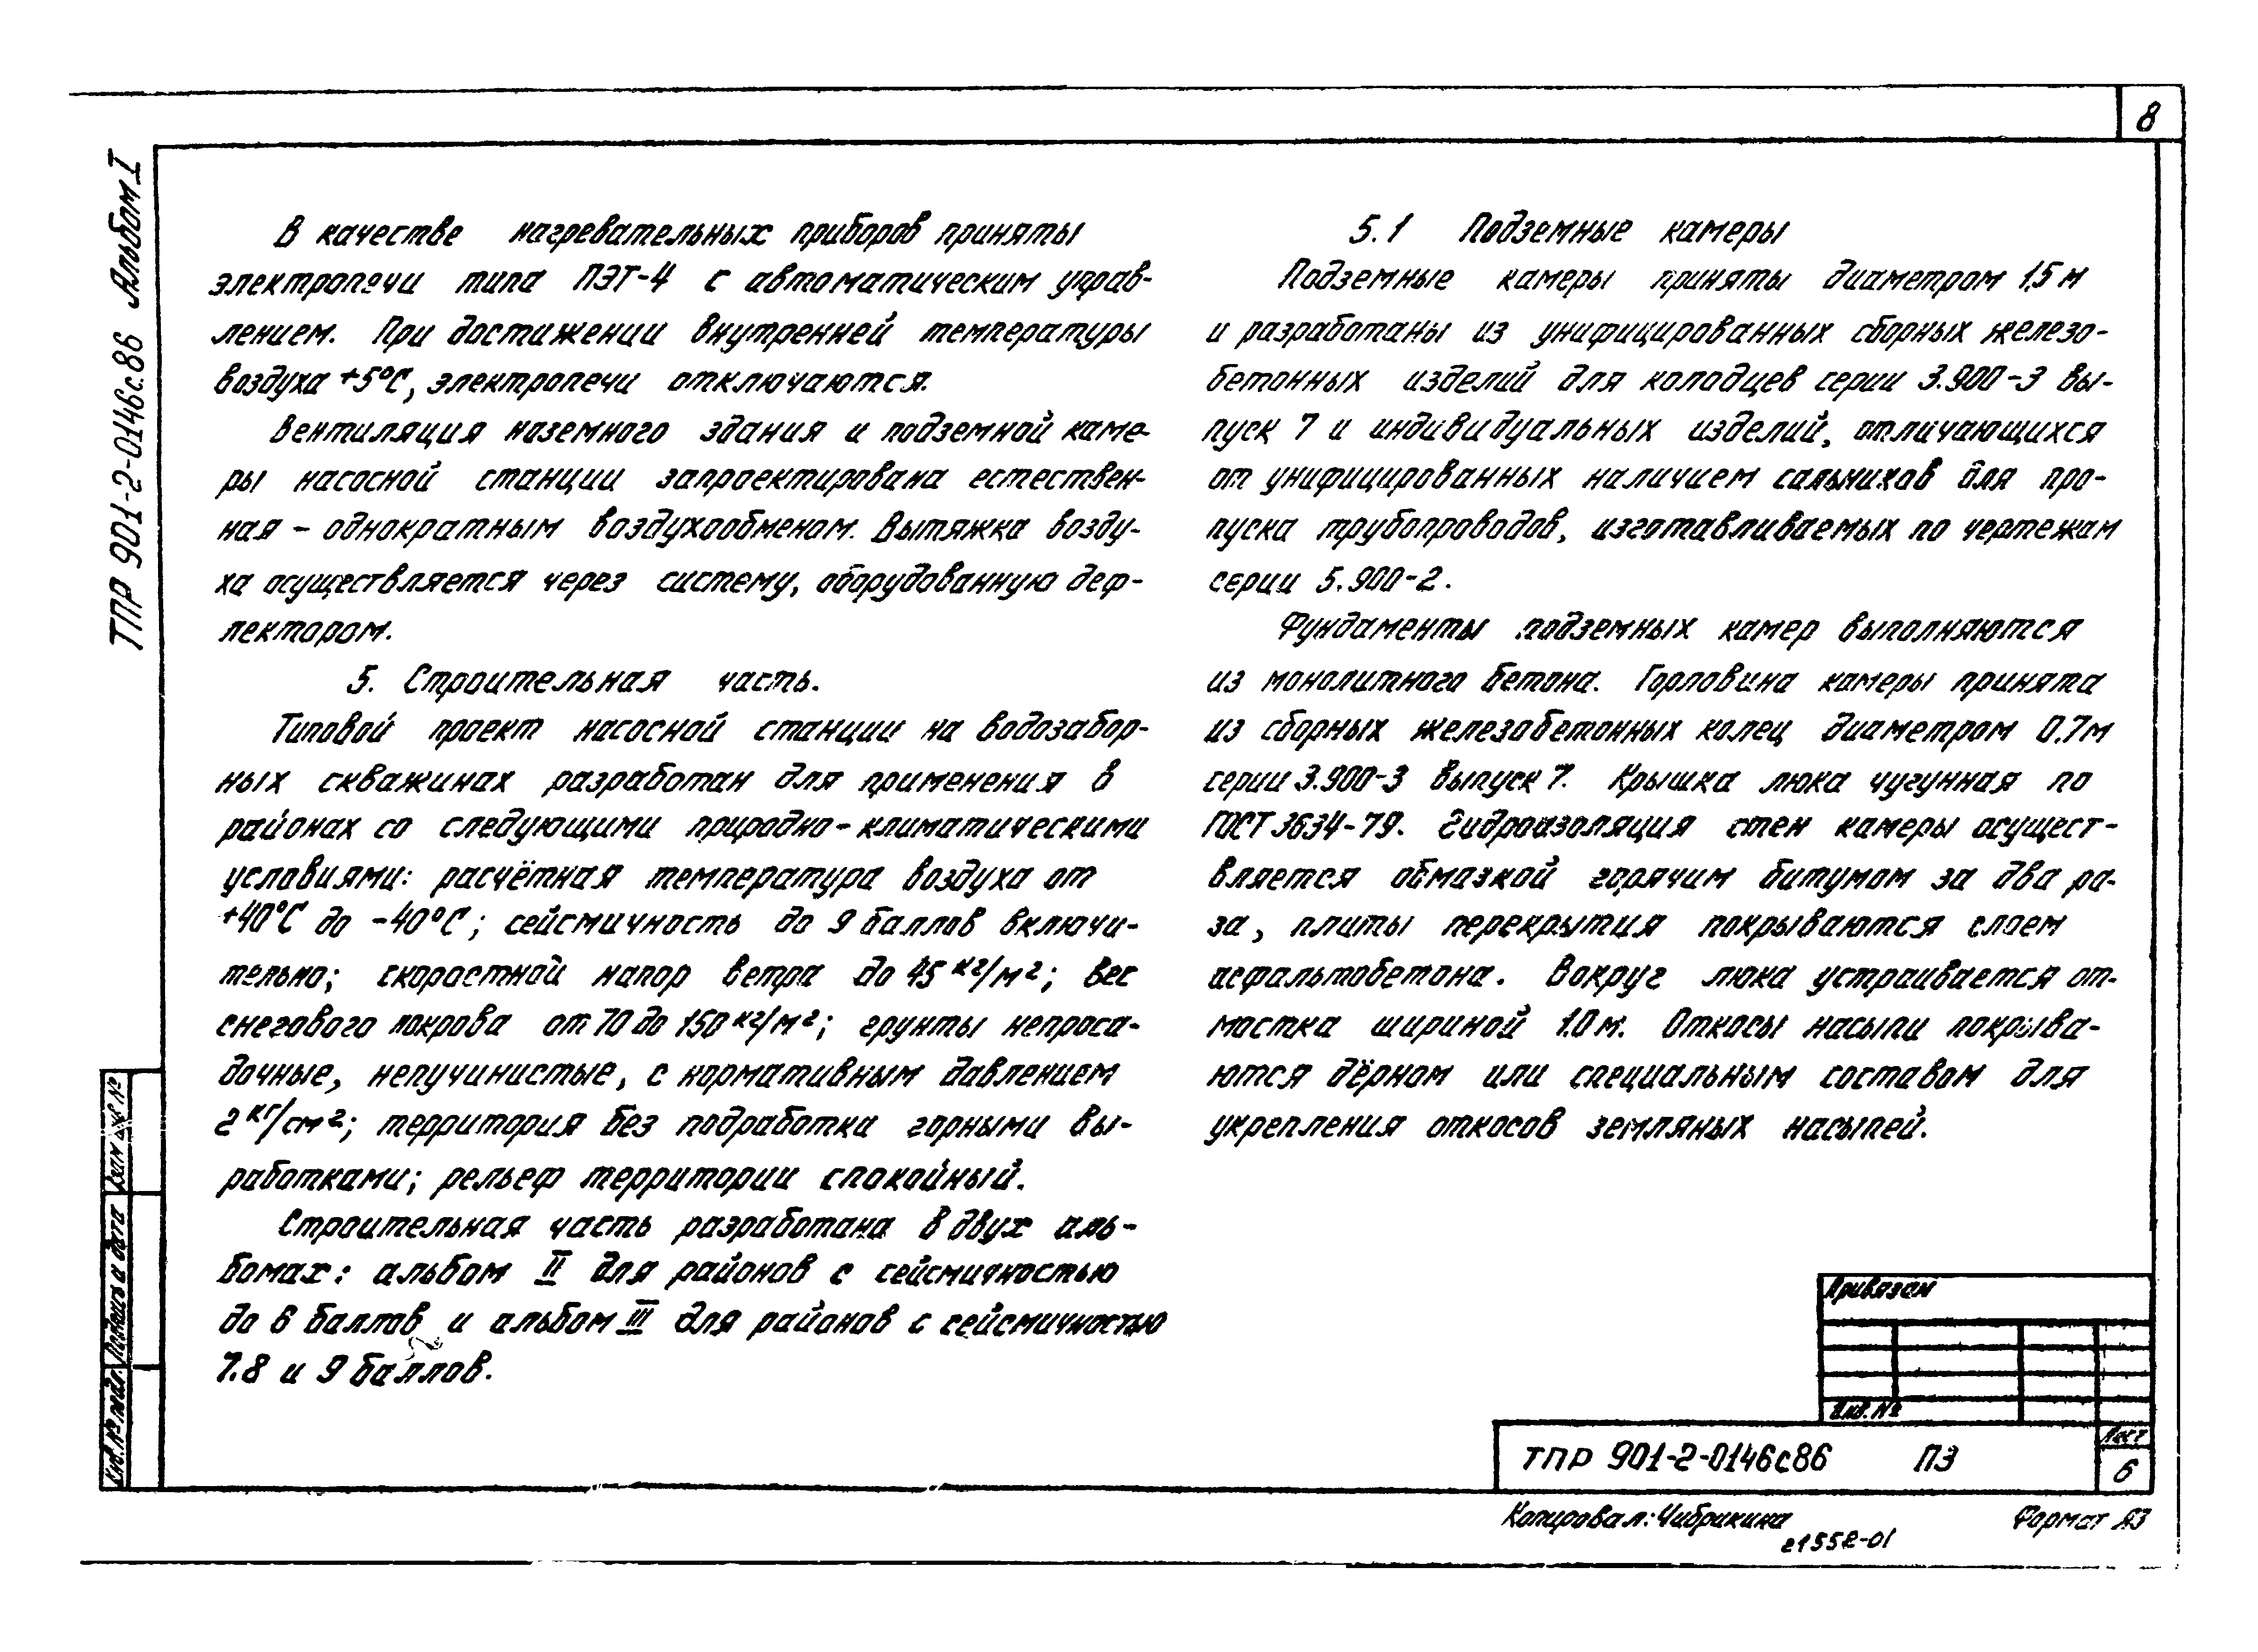 8
ТПР 901-2-0146с.86 Альбом I
В качестве нагревательных приборов приняты
электропечи типа ПЭТ-4 с автоматическим управ-
лением. При достижении внутренней температуры
воздуха +5°С, электропечи отключаются.
Вентиляция наземного здания и подземной каме-
ры насосной станции запроектирована естествен-
ная - однократным воздухообменом. Вытяжка возду-
ха осуществляется через систему, оборудованную деф-
лектором.
5. Строительная часть.
Типовой проект насосной станции на водозабор-
ных скважинах разработан для применения в
районах со следующими природно-климатическими
условиями: расчётная температура воздуха от
+40°С до -40°С; сейсмичность до 9 баллов включи-
тельно; скоростной напор ветра до 45 кг/м²; вес
снегового покрова от 70 до 150 кг/м²; грунты непроса-
дочные, непучинистые, с нормативным давлением
2 кг/см²; территория без подработки горными вы-
работками; рельеф территории спокойный.
Строительная часть разработана в двух аль-
бомах: альбом II для районов с сейсмичностью
до 6 баллов и альбом III для районов с сейсмичностью
7.8 и 9 баллов.
5.1 Подземные камеры
Подземные камеры приняты диаметром 1,5 м
и разработаны из унифицированных сборных железо-
бетонных изделий для колодцев серии 3.900-3 вы-
пуск 7 и индивидуальных изделий, отличающихся
от унифицированных наличием сальников для про-
пуска трубопроводов, изготавливаемых по чертежам
серии 5.900-2.
Фундаменты подземных камер выполняются
из монолитного бетона. Горловина камеры принята
из сборных железобетонных колец диаметром 0.7м
серии 3.900-3 выпуск 7. Крышка люка чугунная по
ГОСТ 3634-79. Гидроизоляция стен камеры осущест-
вляется обмазкой горячим битумом за два ра-
за, плиты перекрытия покрываются слоем
асфальтобетона. Вокруг люка устраивается от-
мостка шириной 1.0 м. Откосы насыпи покрыва-
ются дёрном или специальным составом для
укрепления откосов земляных насыпей.
Взам. инв. №
Подпись и дата
Инв. № подл.
Привязан
Инв. №
ТПР 901-2-0146с86 ПЗ
Лист
6
Копировал: Чибрикина
21552-01
Формат А3